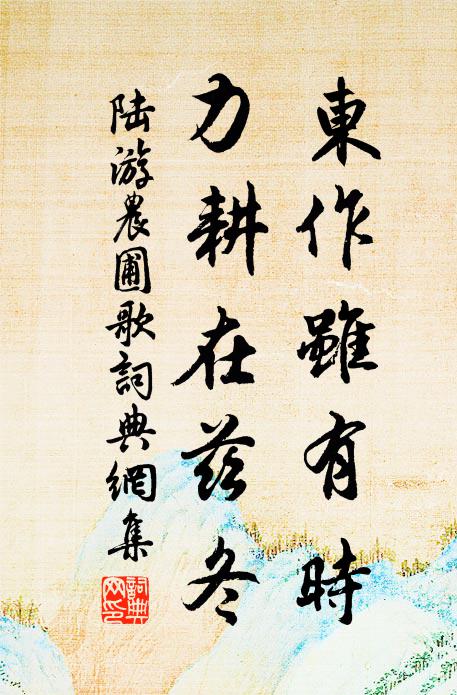 東作雖有時
力耕在茲冬
陸游農圃歌詞典網集
詞典網印